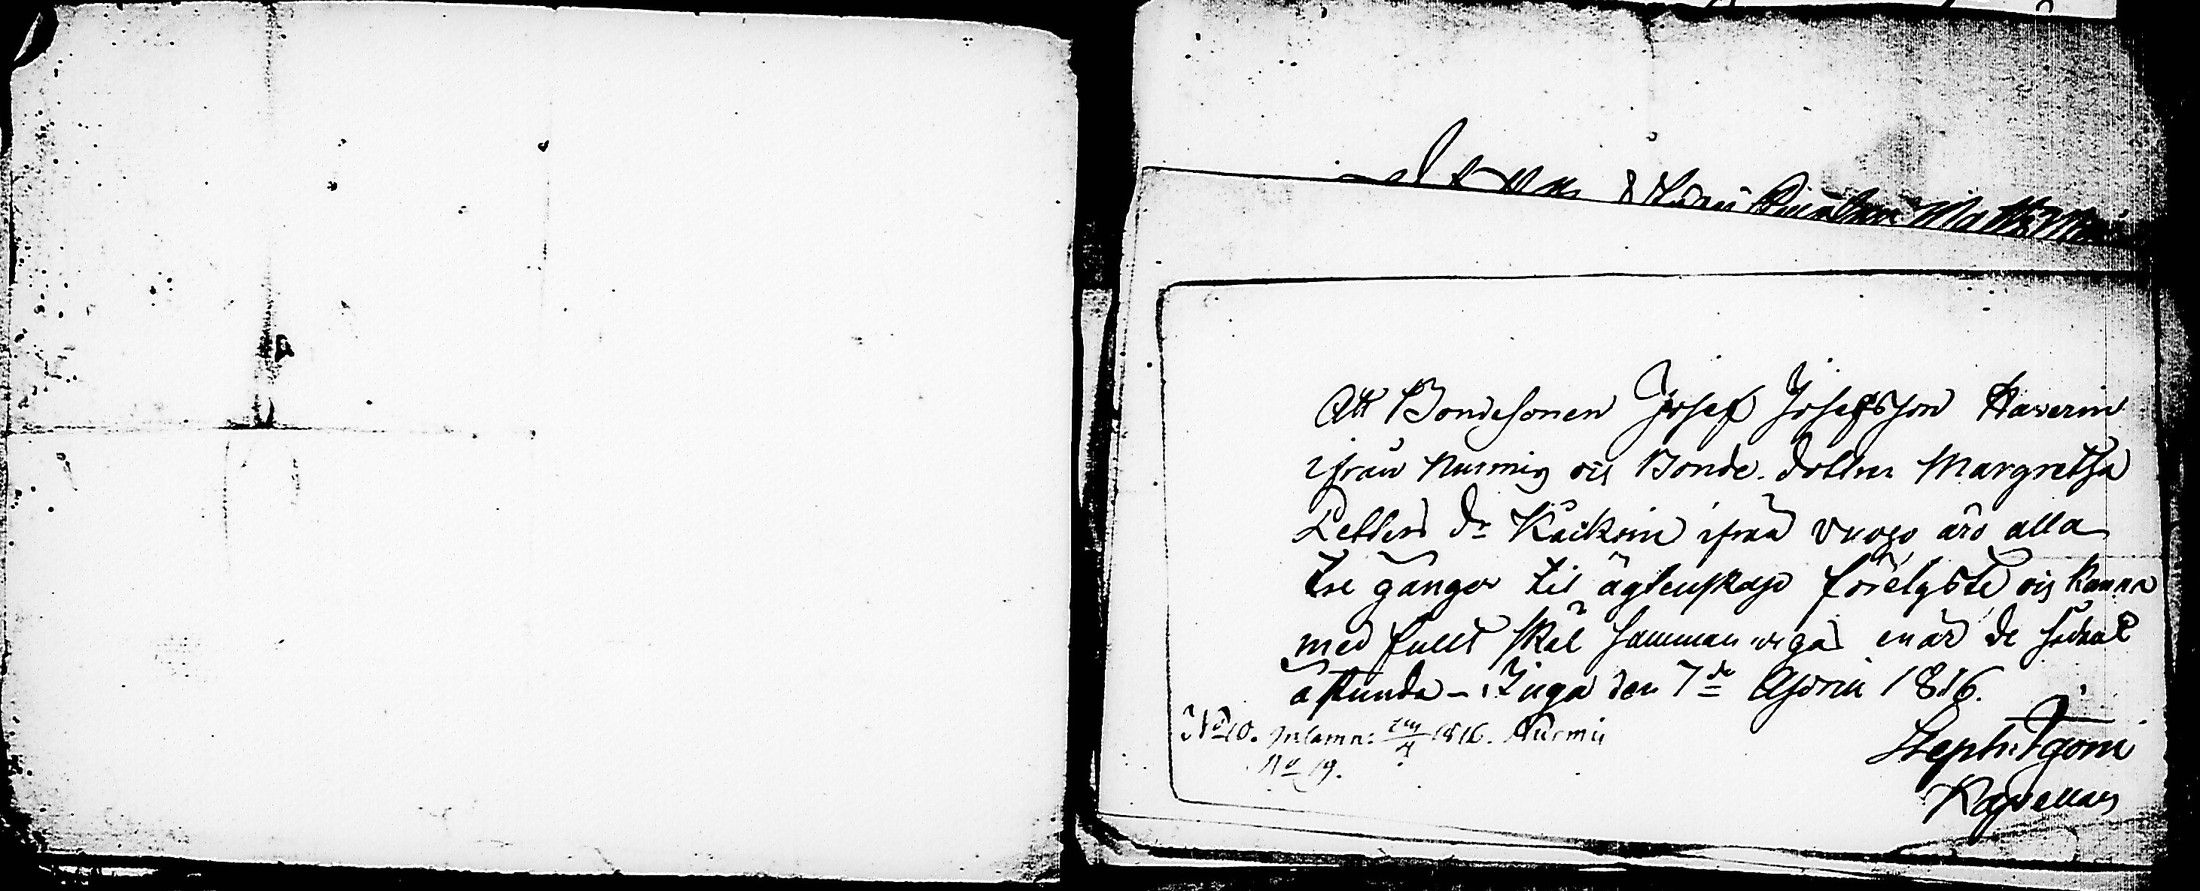 Att Bondesonen Josef Josefsson Haverin
ifrån Nurmis och Bonde dottren Margretha
Petters dr Käckoin ifrån Vuogo äro alla
tre gånger til ägtenskap förelyste och kunna
med fullt skäl samman vigas enär de sådant
åstunda - Juga den 7de April 1816.
Steph: Ignoni
Kapellan
No 10. Inlämn: 1816. Nurmis
No 19.